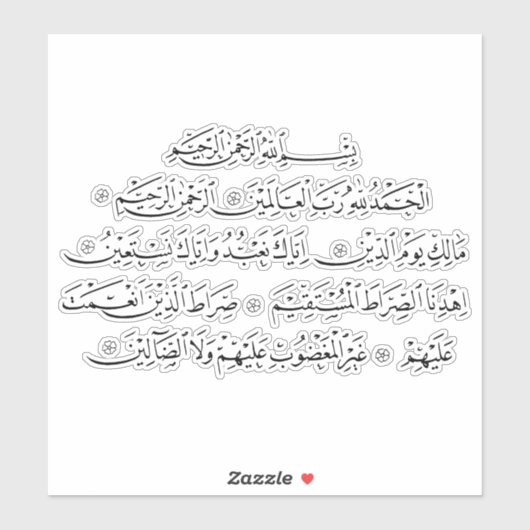 بِسْمِ اللهِ الرَّحْمٰنِ الرَّحِيْمِ
الْحَمْدُ لِلّٰهِ رَبِّ الْعَالَمِيْنَ ۞ الرَّحْمٰنِ الرَّحِيْمِ ۞
مَالِكِ يَوْمِ الدِّيْنِ ۞ اِيَّاكَ نَعْبُدُ وَاِيَّاكَ نَسْتَعِيْنُ ۞
اِهْدِنَا الصِّرَاطَ الْمُسْتَقِيْمَ ۞ صِرَاطَ الَّذِيْنَ اَنْعَمْتَ
عَلَيْهِمْ ۞ غَيْرِ الْمَغْضُوْبِ عَلَيْهِمْ وَلَا الضَّالِّيْنَ ۞
Zazzle